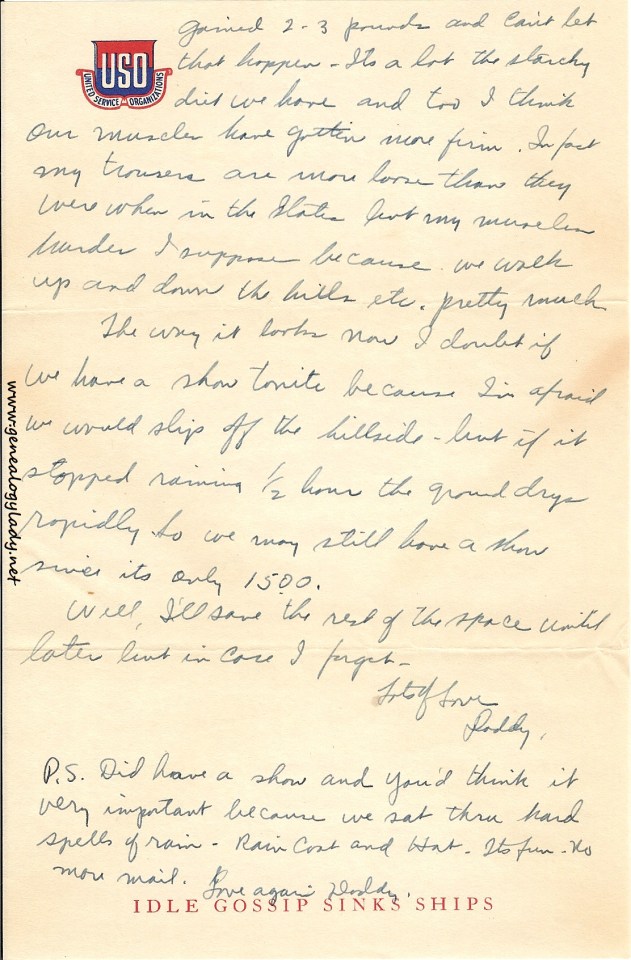 gained 2-3 pounds and can't let
that happen - Its a lot the starchy
diet we have and too I think
our muscles have gotten more firm. In fact
my trousers are more loose than they
were when in the States but my muscles
harder I suppose because we walk
up and down the hills etc. pretty much
The way it looks now I doubt if
we have a show tonite because I'm afraid
we would slip off the hillside - but if it
stopped raining 1/2 hour the ground drys
rapidly so we may still have a show
since its only 1500.
Well, I'll save the rest of the space until
later but in case I forget -
Lots of Love
Daddy.
P.S. Did have a show and you'd think it
very important because we sat thru hard
spells of rain - Rain Coat and Hat - Its fun - No
more mail. Love again Daddy.
USO
UNITED SERVICE ORGANIZATIONS
IDLE GOSSIP SINKS SHIPS
www.genealogylady.net